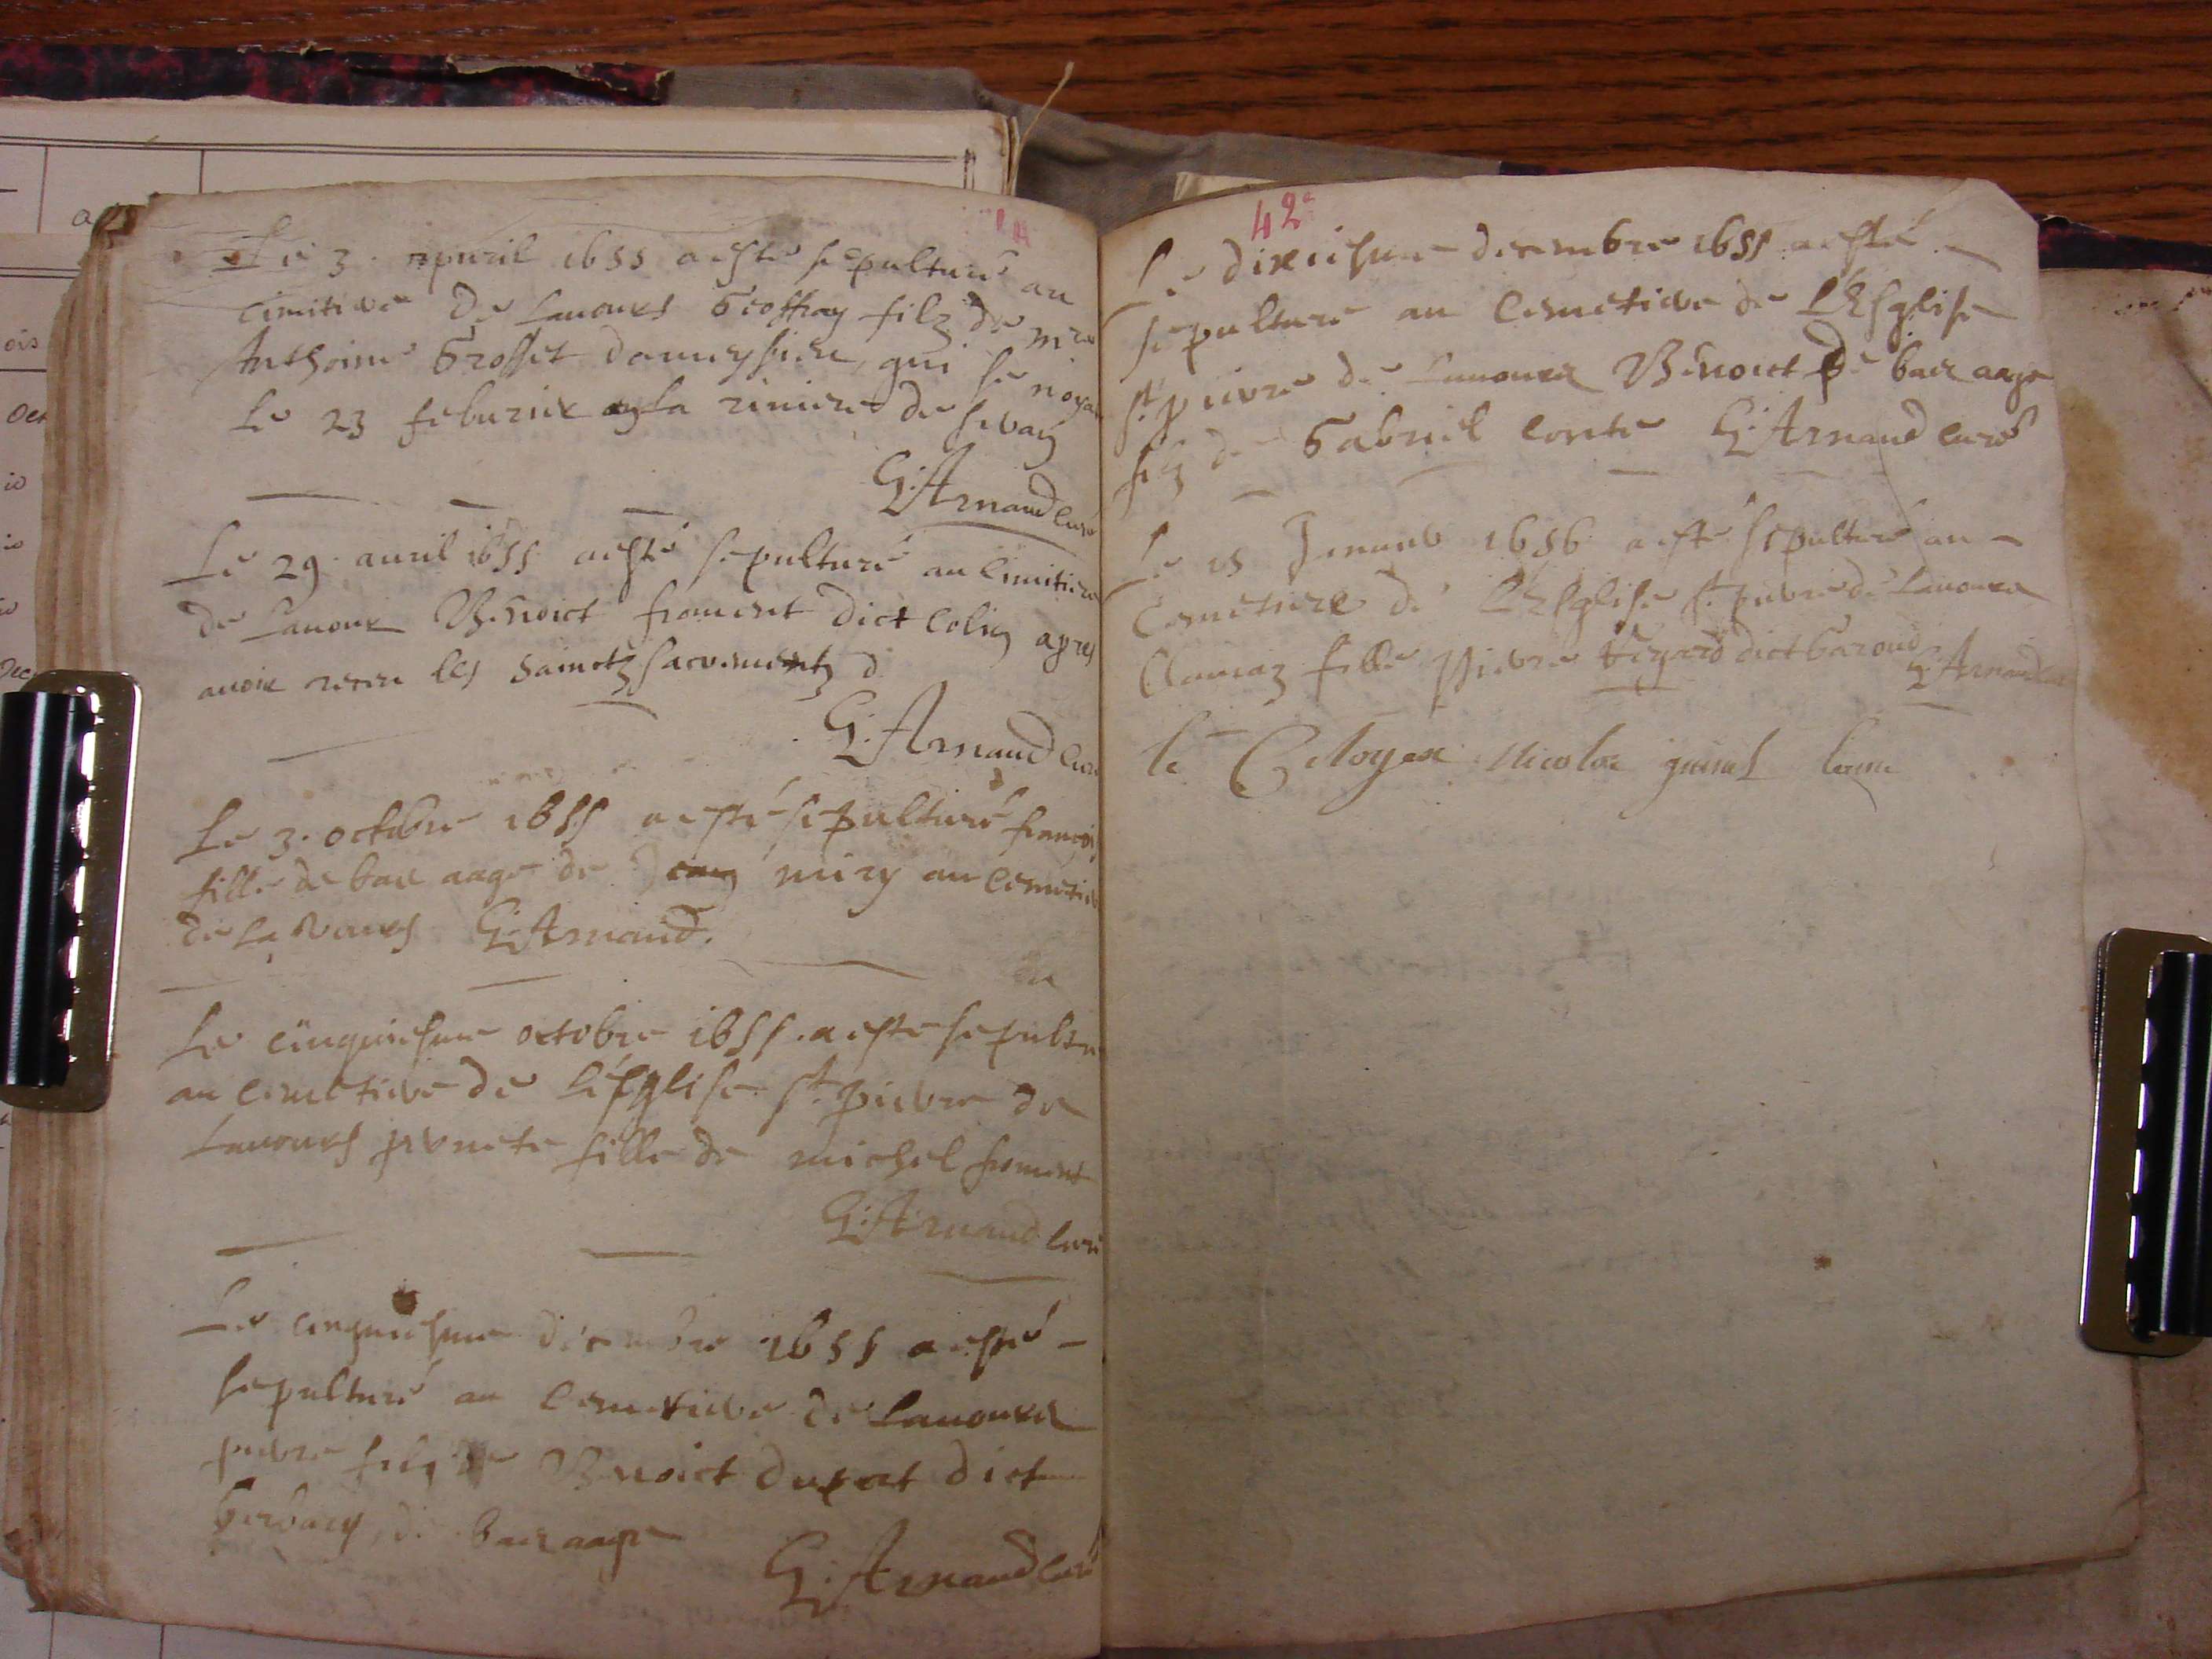 Le 3. apuril 1655 a esté sepulturé au
cimitiere de Lauours Geoffray filz de mre
Anthoine Grosset dameysieu, qui se noya
le 23 feburier en la riuiere de
G. Arnaud curé
Le 29. auril 1655 a esté sepulturé au cimitiere
de Lauour Benoict froment dict Colin apres
auoir receu les sainctz sacrementz
G. Arnaud curé
Le 3. octobre 1655 a esté sepulturé
fille de bas aage de Jean miry au cemetiere
de Lavours G. Arnaud.
Le cinquiesme octobre 1655. a esté
au cemetiere de L'église st. pierre de
Lauours pernete fille de michel froment
G. Arnaud curé
Le cinquiesme decembre 1655 a esté
sepulturé au cemetiere de Lauours
pierre filz de Benoict duport dict
de bas aage
G. Arnaud curé
42
Le dixiesme decembre 1655 a esté
sepulturé au cemetiere de L'Esglise
st pierre de Lauours Benoict de bas aage
filz de Gabriel conte G. Arnaud curé
Le 15 Januier 1656 a esté sepulturé au
cemetiere de L'Esglise st. pierre de Lauours
Clauaz fille Pierre dict G. Arnaud
le Citoyen Nicolas